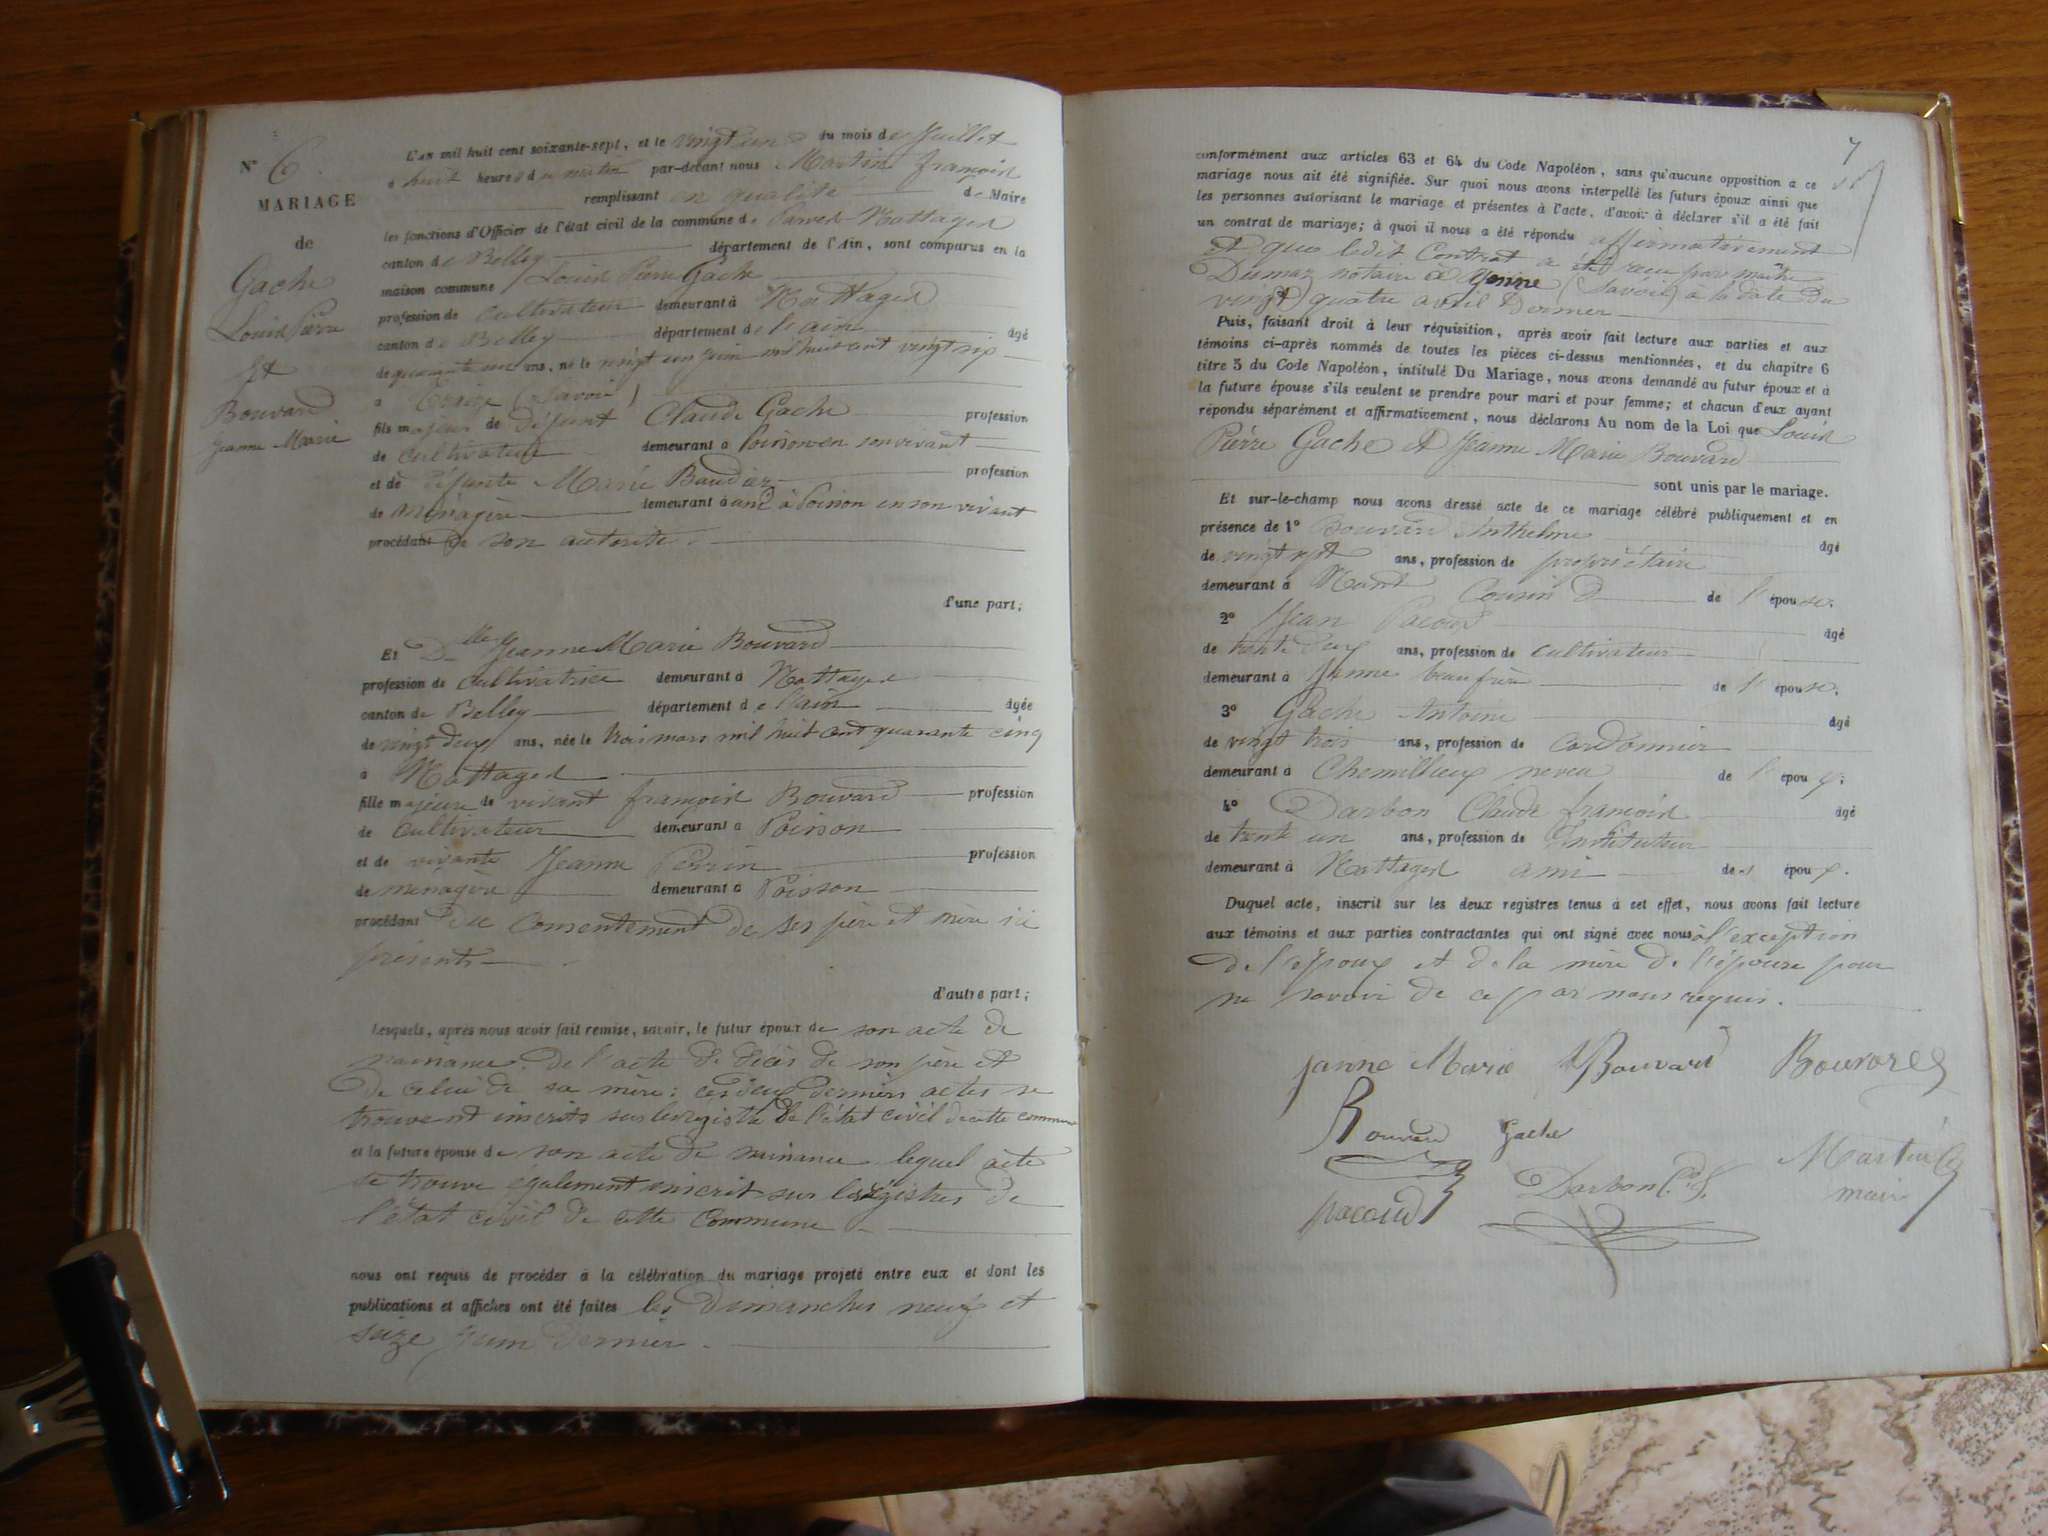 N° 6
MARIAGE
de
Gache
Louis Pierre
Et
Bouvard
Jeanne Marie
L'an mil huit cent soixante-sept, et le vingt un du mois de Juillet
à huit heures du matin par-devant nous Martin françois
remplissant en qualité de Maire
les fonctions d'Officier de l'état civil de la commune de Parves-Nattages
canton de Belley département de l'Ain, sont comparus en la
maison commune Louis Pierre Gache
profession de cultivateur demeurant à Nattages
canton de Belley département de l'ain âgé
de quarante un ans, né le vingt un juin mil huit cent vingt six
à Traize (Savoie)
fils majeur de défunt Claude Gache profession
de cultivateur demeurant à Poisson en son vivant
et de défunte Marie Baudier profession
de ménagère demeurant à à Poisson en son vivant
procédant de son autorité
d'une part;
Et Dlle Jeanne Marie Bouvard
profession de cultivatrice demeurant à Nattages
canton de Belley département de l'ain âgée
de vingt deux ans, née le trois mars mil huit cent quarante cinq
à Nattages
fille majeure de vivant françois Bouvard profession
de cultivateur demeurant à Poisson
et de vivante Jeanne Perrin profession
de ménagère demeurant à Poisson
procédant du consentement de ses père et mère ici
présents
d'autre part;
Lesquels, après nous avoir fait remise, savoir, le futur époux de son acte de
naissance, de l'acte de décès de son père et
de celui de sa mère: ces deux derniers actes se
trouvent inscrits sur les registre de l'état civil de cette commune
et la future épouse de son acte de naissance lequel acte
se trouve également inscrit sur les régistres de
l'état civil de cette commune
nous ont requis de procéder à la célébration du mariage projeté entre eux et dont les
publications et affiches ont été faites les dimanches neuf et
seize juin dernier.
7
conformément aux articles 63 et 64 du Code Napoléon, sans qu'aucune opposition à ce
mariage nous ait été signifiée. Sur quoi nous avons interpellé les futurs époux ainsi que
les personnes autorisant le mariage et présentes à l'acte, d'avoir à déclarer s'il a été fait
un contrat de mariage; à quoi il nous a été répondu affirmativement
et que ledit Contrat a été reçu par maître
Dumaz notaire à Yenne (Savoie) à la date du
vingt quatre avril dernier
Puis, faisant droit à leur réquisition, après avoir fait lecture aux parties et aux
témoins ci-après nommés de toutes les pièces ci-dessus mentionnées, et du chapitre 6
titre 5 du Code Napoléon, intitulé Du Mariage, nous avons demandé au futur époux et à
la future épouse s'ils veulent se prendre pour mari et pour femme; et chacun d'eux ayant
répondu séparément et affirmativement, nous déclarons Au nom de la Loi que Louis
Pierre Gache et Jeanne Marie Bouvard
sont unis par le mariage.
Et sur-le-champ nous avons dressé acte de ce mariage célébré publiquement et en
présence de 1° Bouvard Anthelme âgé
de vingt sept ans, profession de propriétaire
demeurant à Nant Cousin de l'épouse.
2° Jean Pacoud âgé
de trente deux ans, profession de cultivateur
demeurant à Yenne beau frère de l'épouse;
3° Gache Antoine âgé
de vingt trois ans, profession de cordonnier
demeurant à Chemillieux neveu de l'époux;
4° Darbon Claude françois âgé
de trente un ans, profession de Instituteur
demeurant à Nattages ami des époux.
Duquel acte, inscrit sur les deux registres tenus à cet effet, nous avons fait lecture
aux témoins et aux parties contractantes qui ont signé avec nous à l'exception
de l'époux et de la mère de l'épouse pour
ne savoir de ce par nous requis.
janne Marie Bouvard Bouvard
Bouvard Gache
Martin
pacoud Darbon
maire